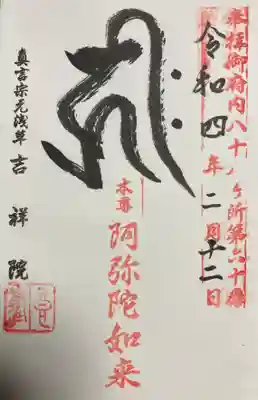 奉拝御府内八十八ヶ所第六十番
令和四年二月十二日
𑖮𑖿𑖨𑖱𑖾
本尊
阿弥陀如来
真言宗元浅草吉祥院